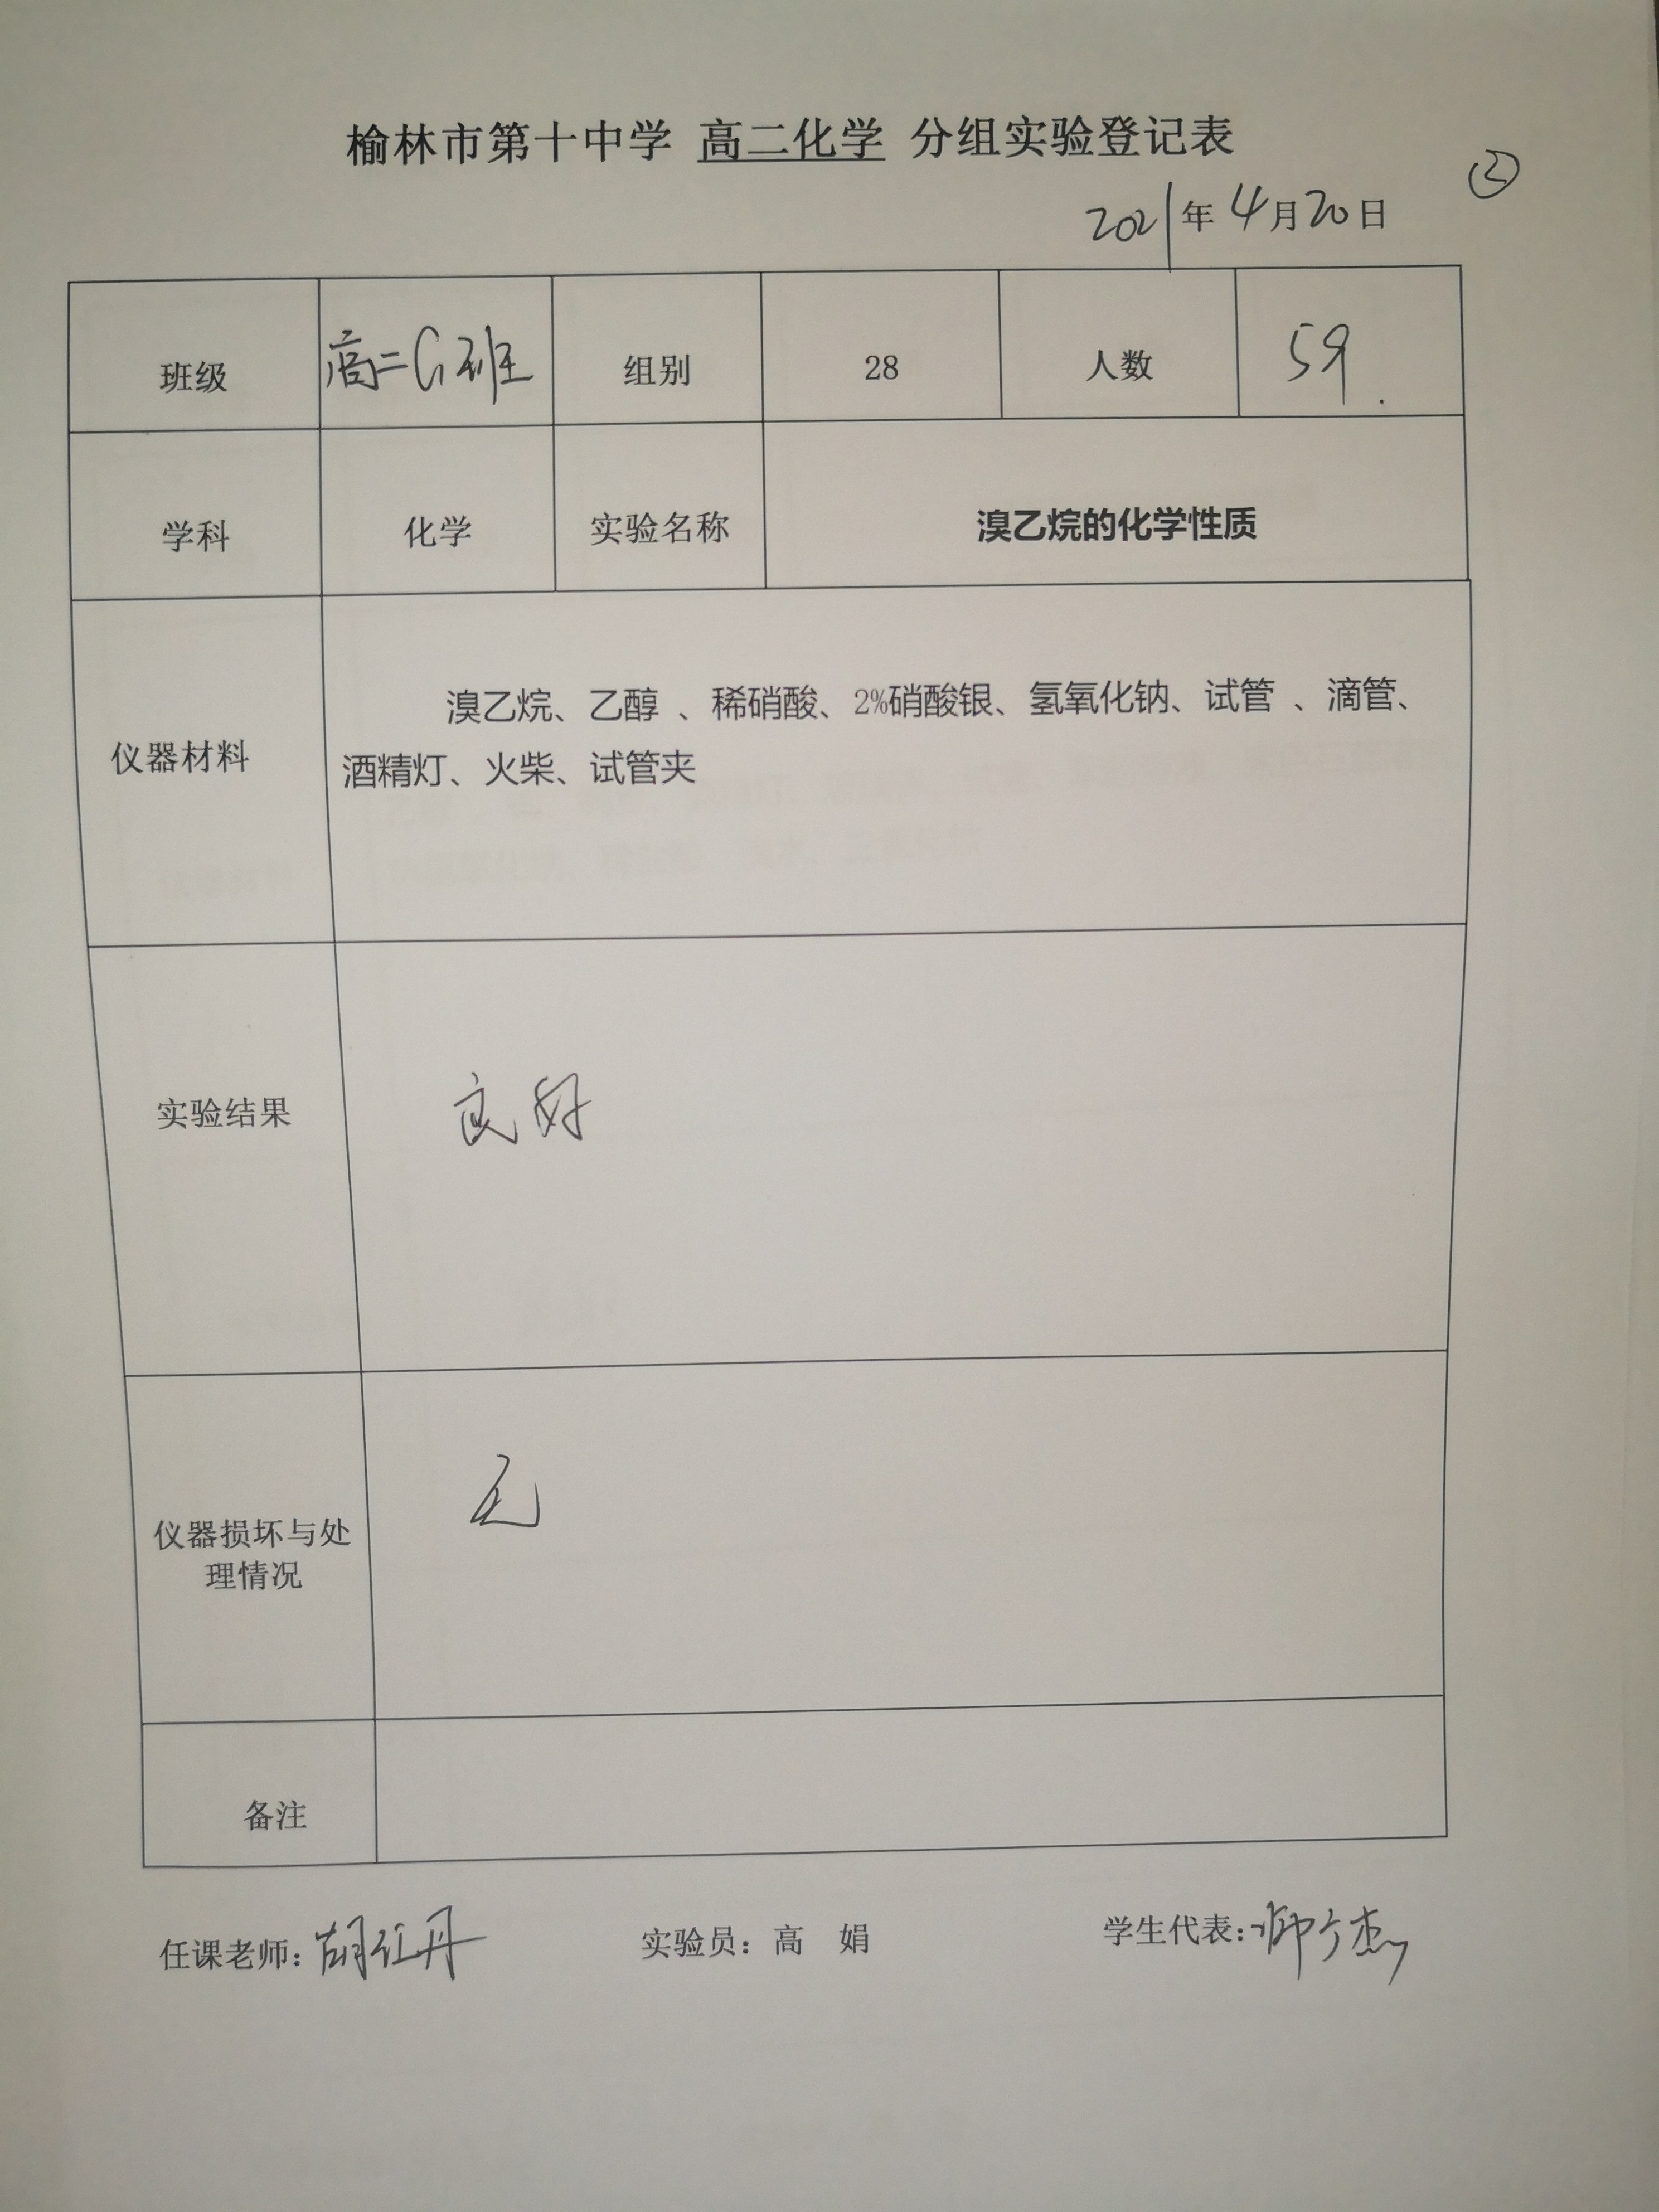 榆林市第十中学 高二化学 分组实验登记表
②
2021年4月20日
班级 高二G班 组别 28 人数 59.
学科 化学 实验名称 溴乙烷的化学性质
仪器材料
溴乙烷、乙醇 、稀硝酸、2%硝酸银、氢氧化钠、试管 、滴管、
酒精灯、火柴、试管夹
实验结果 良好
仪器损坏与处
理情况
无
备注
任课老师：胡红丹 实验员：高 娟 学生代表：师宁杰